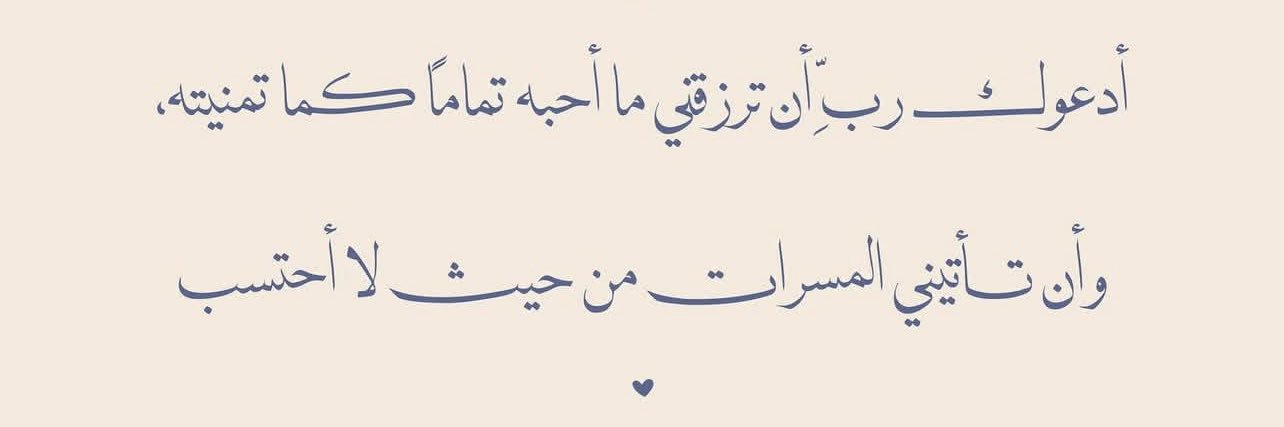 أدعوك ربِّ أن ترزقني ما أحبه تمامًا كما تمنيته،
وأن تأتيني المسرات من حيث لا أحتسب